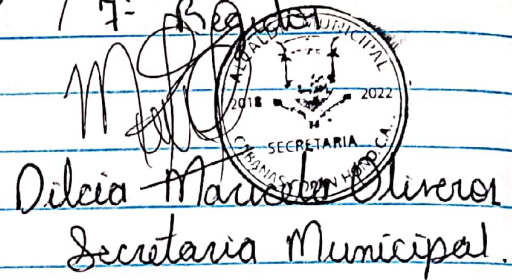 7- Regidor
ALCALDIA MUNICIPAL
2018 2022
SECRETARIA
CABAÑAS COPAN HOND. C.A.
Dilcia Marisela Oliveros
Secretaria Municipal.